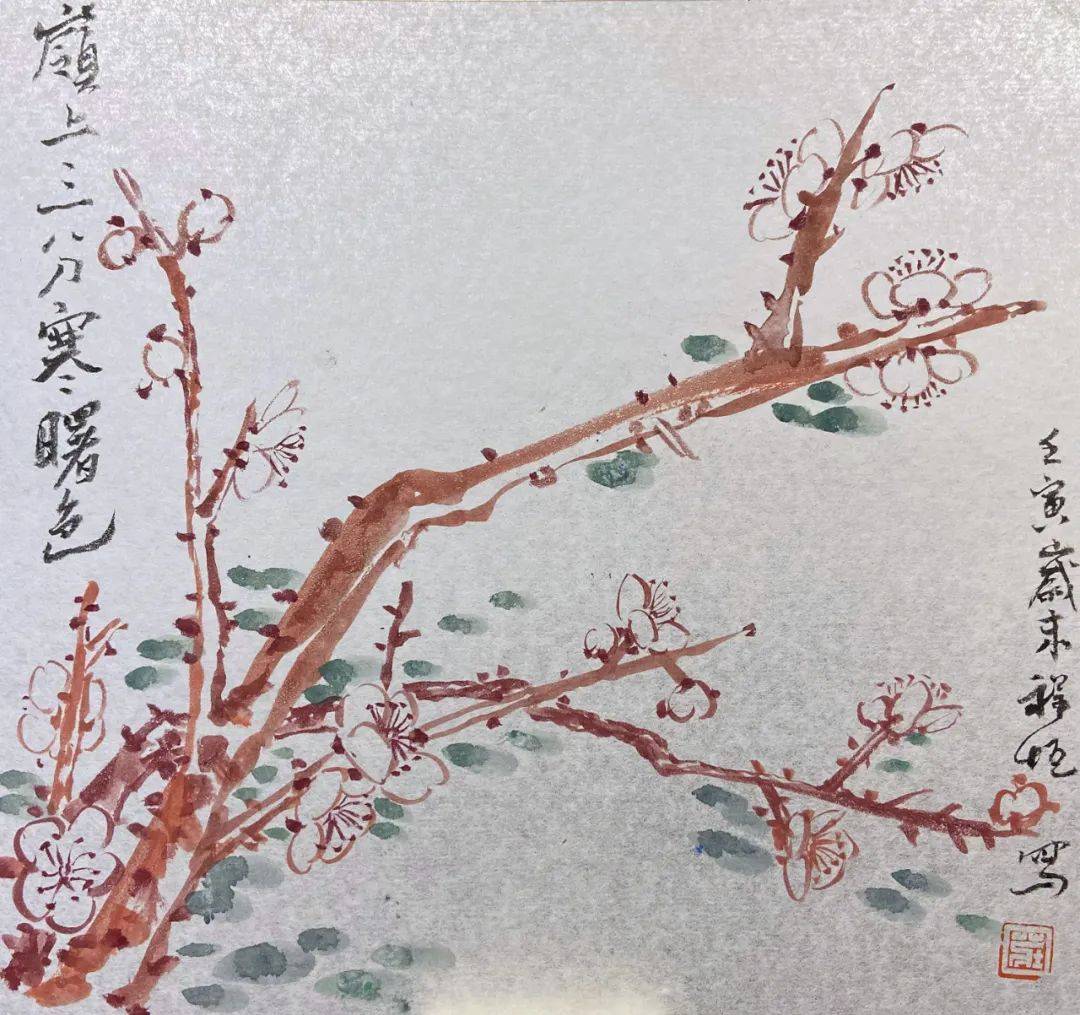 嶺上三分寒曙色
壬寅歲末程恒寫